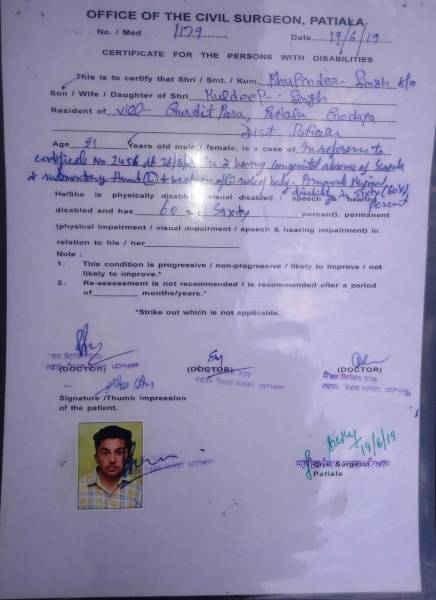 OFFICE OF THE CIVIL SURGEON, PATIALA
No. / Med 1179 Date 19/6/19
CERTIFICATE FOR THE PERSONS WITH DISABILITIES
This is to certify that Shri / Smt. / Kum. Bhupinder Singh S/o
Son / Wife / Daughter of Shri Kuldeep Singh
Resident of Vill Patiala
Distt Patiala
Age 21 Years old male / female, is a case of In reference to
certificate No 2456 dt having Congenital absence of Scapula
& rudimentary Hand (L) + of body - Permanent
disability is Sixty (60%)
He/She is physically disabled / visual disabled / speech & hearing percent
disabled and has 60 % ( Sixty percent). permanent
(physical impairment / visual impairment / speech & hearing impairment) in
relation to his / her
Note :
1. This condition is progressive / non-progressive / likely to improve / not
likely to improve.*
2. Re-assessment is not recommended / is recommended after a period
of months/years.*
*Strike out which is not applicable.
(DOCTOR) (DOCTOR) (DOCTOR)
Signature /Thumb impression
of the patient.
19/6/19
Civil Surgeon
Patiala